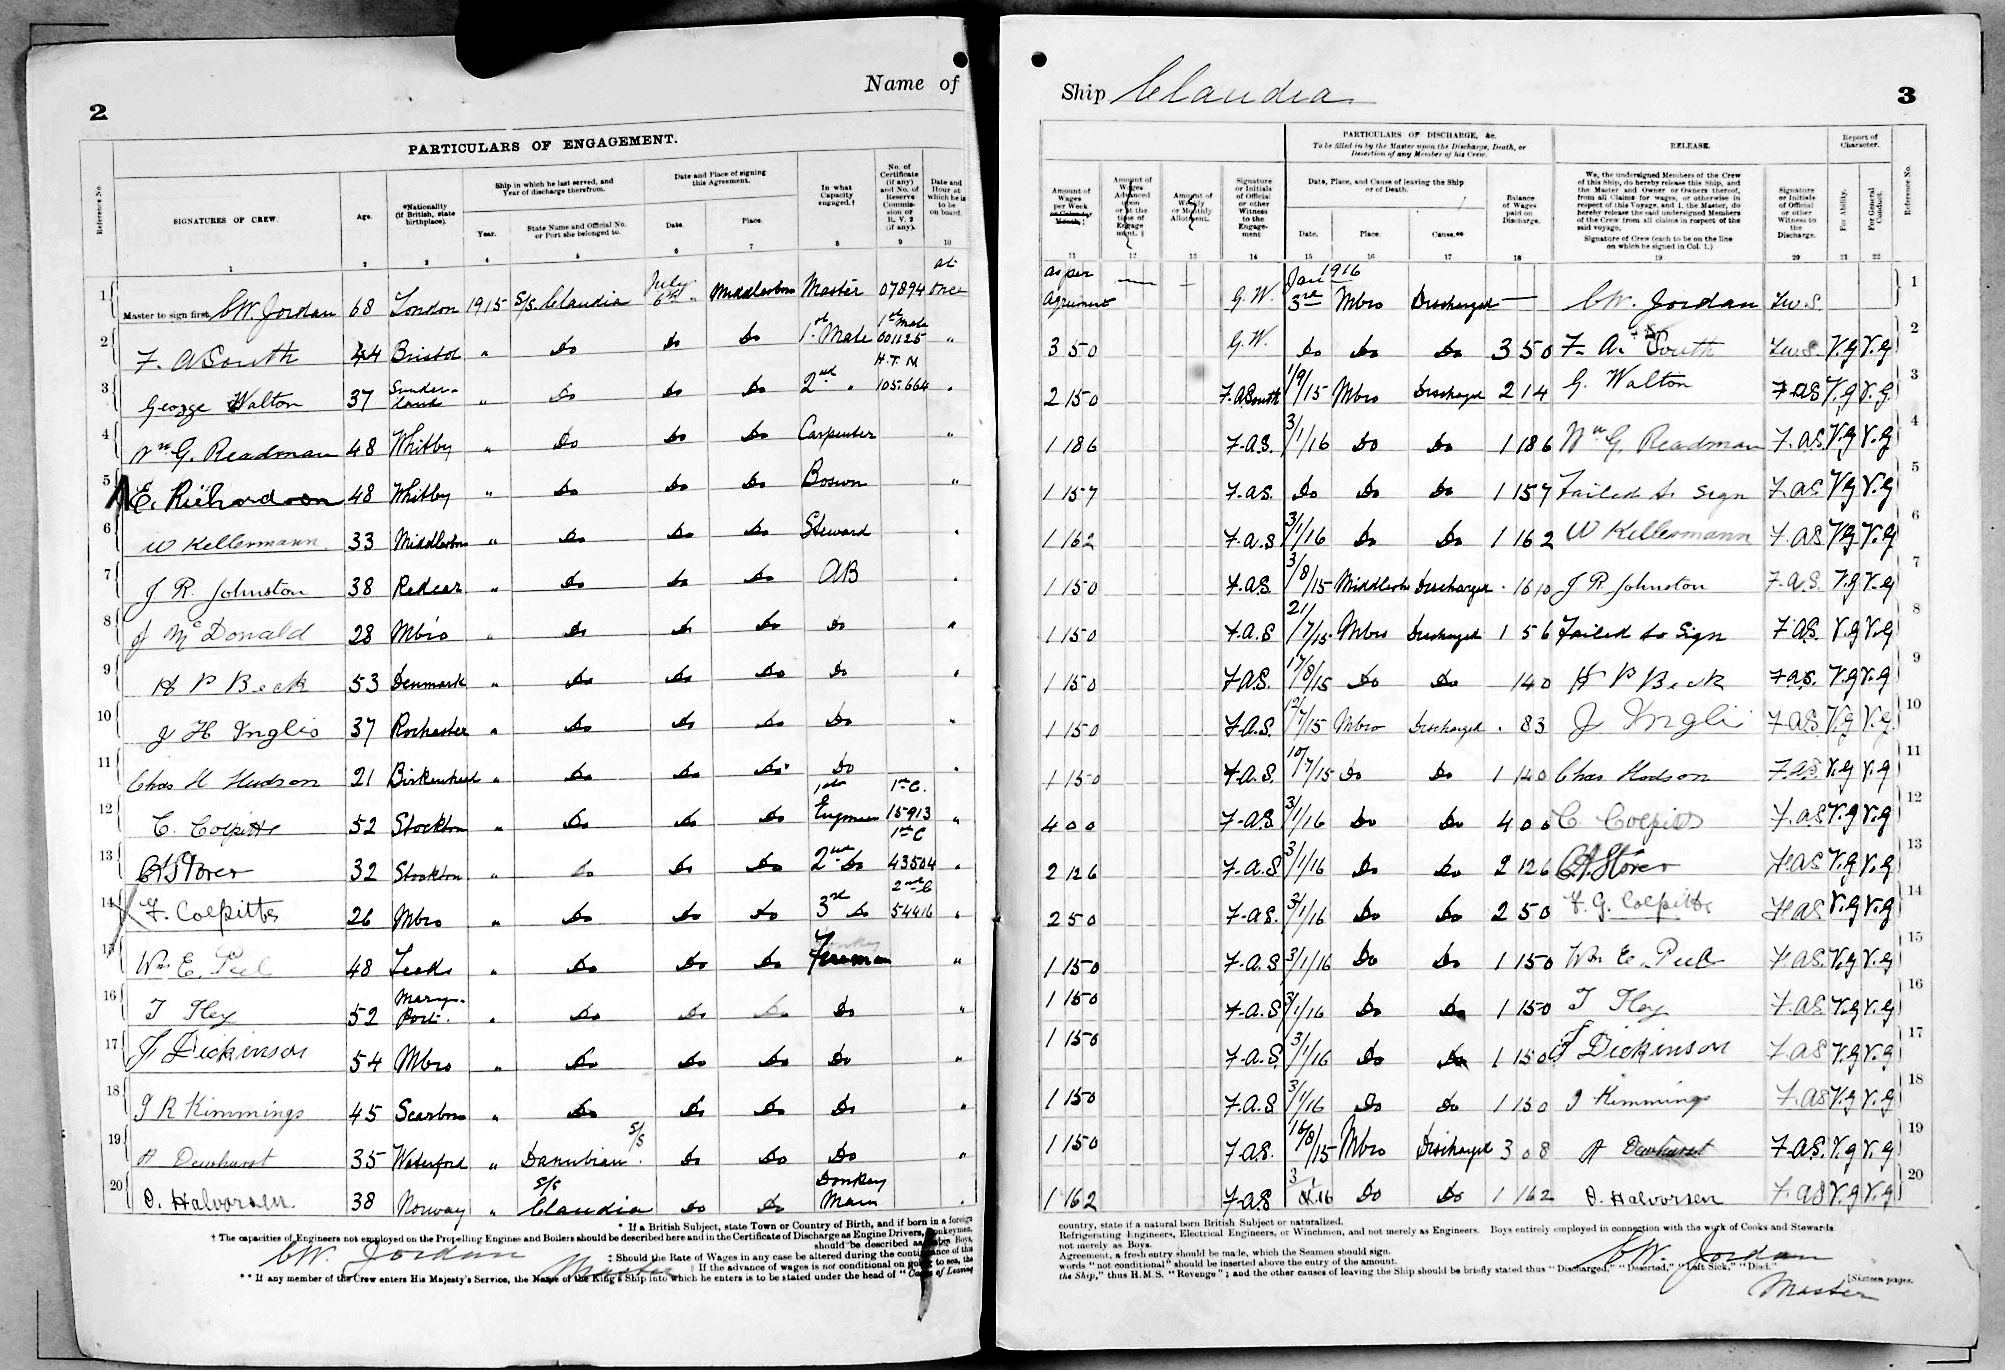 Name of
2
PARTICULARS OF ENGAGEMENT.
Reference No.
SIGNATURES OF CREW.
Age.
*Nationality (if British, state birthplace).
Ship in which he last served, and Year of discharge therefrom.
Year.
State Name and Official No. or Port she belonged to.
Date and Place of signing this Agreement.
Date.
Place.
In what Capacity engaged.†
No. of Certificate (if any) and No. of Reserve Commission or R. V. 2 (if any).
Date and Hour at which he is to be on board.
1 2 3 4 5 6 7 8 9 10
1 Master to sign first CW. Jordan 68 London 1915 S/S. Claudia July 6th Middlesbro Master 07894 at once
2 F. A South 44 Bristol " Do Do Do 1st Mate 1st Mate 001125 "
3 George Walton 37 Sunderland " Do Do Do 2nd " H.T.N. 105.664 "
4 Wm G. Readman 48 Whitby " Do Do Do Carpenter "
5 E. Richardson 48 Whitby " Do Do Do Bosun "
6 W Kellermann 33 Middlesbro " Do Do Do Steward "
7 J R. Johnston 38 Redcar " Do Do Do AB "
8 J McDonald 28 Mbro " Do Do Do Do "
9 H P Beck 53 Denmark " Do Do Do Do "
10 J H Inglis 37 Rochester " Do Do Do Do "
11 Chas H Hudson 21 Birkenhead " Do Do Do Do "
12 C. Colpitts 52 Stockton " Do Do Do 1st Engineer 1st C. 15913 "
13 CA Storer 32 Stockton " Do Do Do 2nd Do 1st C 43504 "
14 F. Colpitts 26 Mbro " Do Do Do 3rd Do 2nd C 54416 "
15 Wm E. Peel 48 Leeds " Do Do Do Fireman "
16 T Fley 52 Mary-Port. " Do Do Do Do "
17 J Dickinson 54 Mbro " Do Do Do Do "
18 J R Kimmings 45 Scarbro " Do Do Do Do "
19 A Dewhurst 35 Waterford " Danubian S/S Do Do Do "
20 O. Halvorsen 38 Norway " S/S Claudia Do Do Donkey Man "
* If a British Subject, state Town or Country of Birth, and if born in a foreign
† The capacities of Engineers not employed on the Propelling Engines and Boilers should be described here and in the Certificate of Discharge as Engine Drivers, Donkeymen,
should be described as Boys,
‡ Should the Rate of Wages in any case be altered during the continuance of this
|| If the advance of wages is not conditional on going to sea, the
** If any member of the Crew enters His Majesty's Service, the Name of the King's Ship into which he enters is to be stated under the head of "Cause of Leaving
CW. Jordan
Master
Ship Claudia
3
PARTICULARS OF DISCHARGE, &c.
To be filled in by the Master upon the Discharge, Death, or Desertion of any Member of his Crew.
RELEASE.
Report of Character.
Amount of Wages per Week or Calendar Month.‡
Amount of Wages Advanced upon or at the time of Engagement.‡
Amount of Weekly or Monthly Allotment.
Signature or Initials of Official or other Witness to the Engagement
Date, Place, and Cause of leaving the Ship or of Death.
Date.
Place.
Cause.**
Balance of Wages paid on Discharge.
We, the undersigned Members of the Crew of this Ship, do hereby release this Ship, and the Master and Owner or Owners thereof, from all Claims for wages, or otherwise in respect of this Voyage, and I, the Master, do hereby release the said undersigned Members of the Crew from all claims in respect of the said voyage.
Signature of Crew (each to be on the line on which he signed in Col. 1.)
Signature or Initials of Official or other Witness to the Discharge.
For Ability.
For General Conduct.
Reference No.
11 12 13 14 15 16 17 18 19 20 21 22
as per agreement G. W. Jan 1916 3rd Mbro Discharged CW. Jordan 1
3 5 0 G. W. Do Do Do 3 5 0 F. A. South V.g V.g 2
2 15 0 F. A South 1/9/15 Mbro Discharged 2 14 G. Walton F.A.S V.g V.g 3
1 18 6 F.A.S. 3/1/16 Do Do 1 18 6 Wm G. Readman F.A.S. V.g V.g 4
1 15 7 F.A.S. Do Do Do 1 15 7 Failed to sign F.A.S V.g V.g 5
1 16 2 F.A.S 3/1/16 Do Do 1 16 2 W Kellermann F.A.S V.g V.g 6
1 15 0 F.A.S. 3/8/15 Middlesbro Discharged 16 10 J R Johnston F.A.S. V.g V.g 7
1 15 0 F.A.S 21/7/15 Mbro Discharged 1 5 6 Failed to Sign F.A.S. V.g V.g 8
1 15 0 F.A.S. 17/8/15 Do Do 14 0 H P Beck F.A.S. V.g V.g 9
1 15 0 F.A.S. 12/7/15 Mbro Discharged 8 3 J Inglis F.A.S V.g V.g 10
1 15 0 F.A.S. 10/7/15 Do Do 1 14 0 Chas Hudson F.A.S. V.g V.g 11
4 0 0 F.A.S 3/1/16 Do Do 4 0 0 C Colpitts F.A.S V.g V.g 12
2 12 6 F.A.S 3/1/16 Do Do 2 12 6 CA Storer F.A.S V.g V.g 13
2 5 0 F.A.S. 3/1/16 Do Do 2 5 0 F. G. Colpitts F.A.S V.g V.g 14
1 15 0 F.A.S 3/1/16 Do Do 1 15 0 Wm E. Peel F.A.S. V.g V.g 15
1 15 0 F.A.S 3/1/16 Do Do 1 15 0 T Fley F.A.S. V.g V.g 16
1 15 0 F.A.S. 3/1/16 Do Do 1 15 0 J Dickinson F.A.S V.g V.g 17
1 15 0 F.A.S. 3/1/16 Do Do 1 15 0 J Kimmings F.A.S V.g V.g 18
1 15 0 F.A.S. 16/8/15 Mbro Discharged 3 0 8 A Dewhurst F.A.S. V.g V.g 19
1 16 2 F.A.S 3/1/16 Do Do 1 16 2 O. Halvorsen F.A.S V.g V.g 20
country, state if a natural born British Subject or naturalized.
Refrigerating Engineers, Electrical Engineers, or Winchmen, and not merely as Engineers. Boys entirely employed in connection with the work of Cooks and Stewards
not merely as Boys.
Agreement, a fresh entry should be made, which the Seamen should sign.
words "not conditional" should be inserted above the entry of the amount.
the Ship," thus H.M.S. "Revenge"; and the other causes of leaving the Ship should be briefly stated thus "Discharged," "Deserted," "Left Sick," "Died."
[Sixteen pages.
CW. Jordan
Master